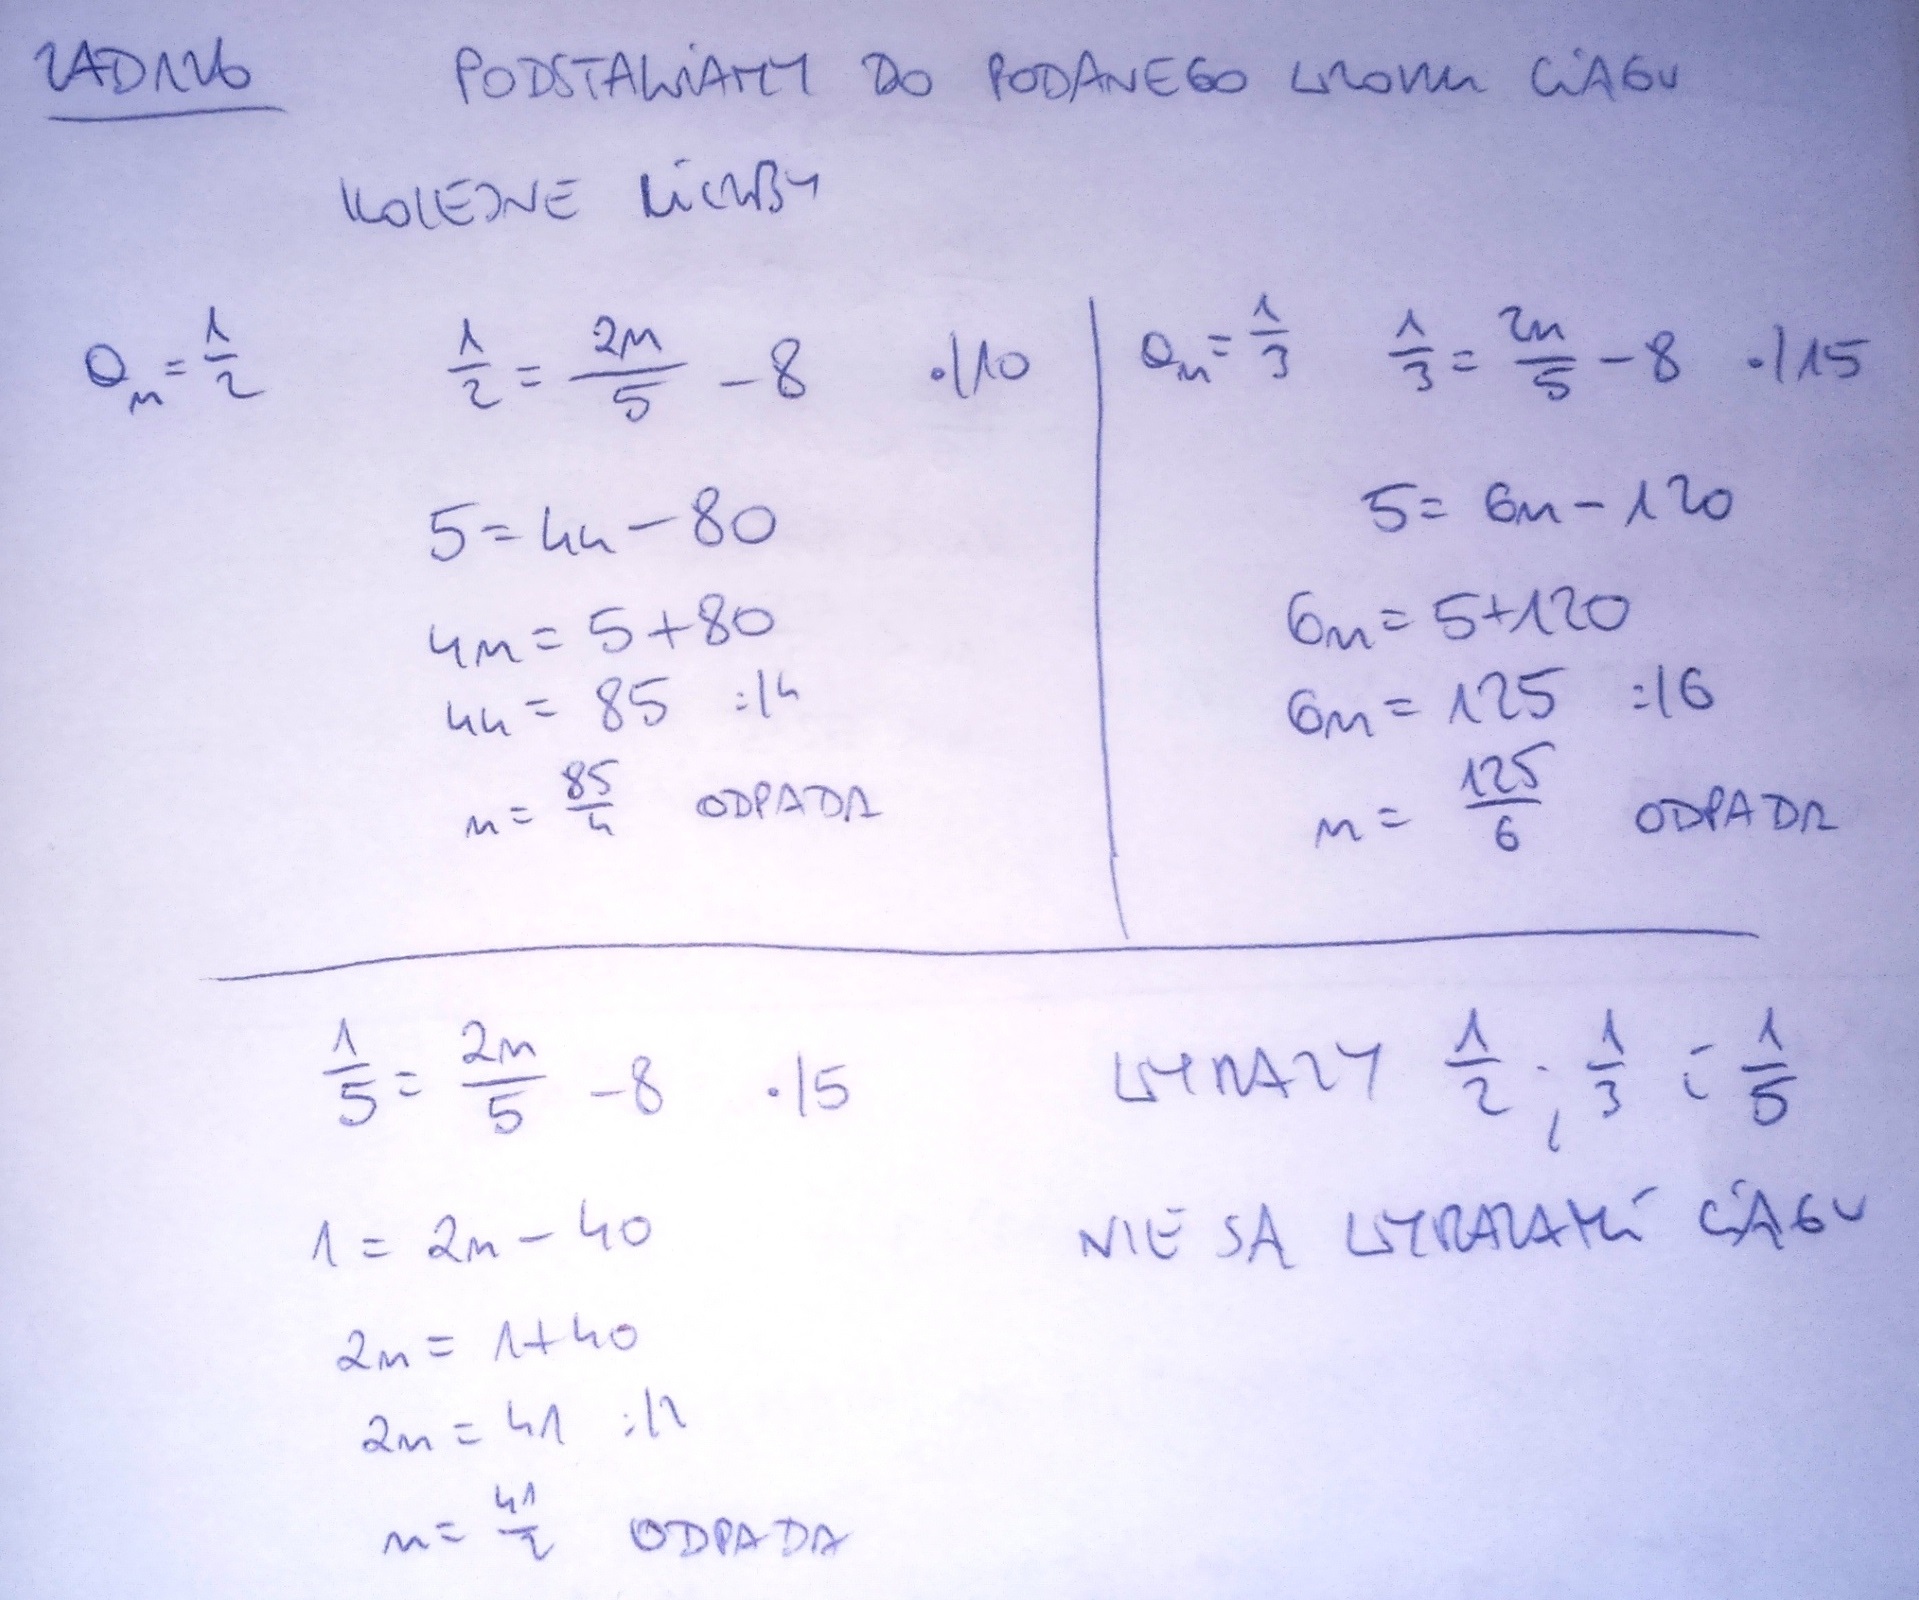 ZAD126 PODSTAWIAMY DO PODANEGO WZORU CIĄGU
KOLEJNE LICZBY
a_n = 1/2   1/2 = 2n/5 - 8   ·/10
5 = 4n - 80
4n = 5 + 80
4n = 85   :/4
n = 85/4   ODPADA
a_n = 1/3   1/3 = 2n/5 - 8   ·/15
5 = 6n - 120
6n = 5 + 120
6n = 125   :/6
n = 125/6   ODPADA
1/5 = 2n/5 - 8   ·/5
1 = 2n - 40
2n = 1 + 40
2n = 41   :/2
n = 41/2   ODPADA
WYRAZY 1/2 ; 1/3 i 1/5
NIE SĄ WYRAZAMI CIĄGU